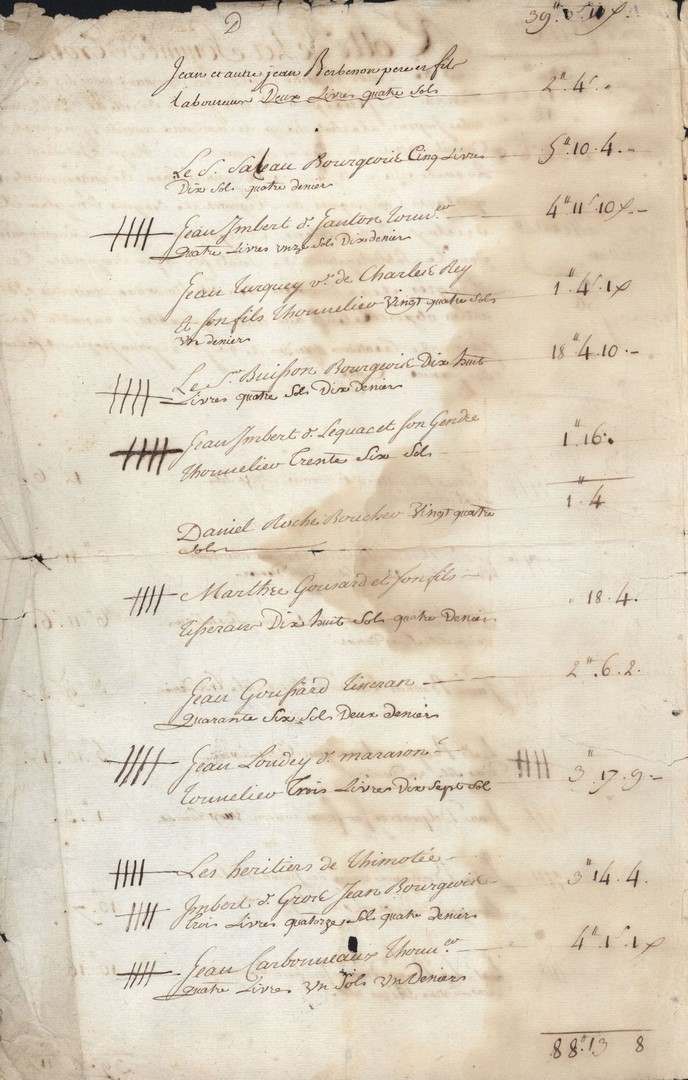 D
39" 3 11
Jean et autre jean Berbenon pere et fils
laboureur Deux Livres quatre Sols 2" 4s.
Le Sr. Saleau Bourgeois Cinq Livres 5" 10. 4.
Dix Sol quatre denier
Jean Imbert d. Janton Tonner 4" 11s 10
quatre Livres vnze Sols Dix denier
Jean Turquey vr. de Charles Rey 1" 4s. 1
Et son fils thonnelier Vingt quatre Sols
vn denier
Le Sr. Buisson Bourgeois Dix huit 18" 4. 10.
Livres quatre Sols Dix Denier
Jean Imbert d. Lequac et son Gendre 1" 16.
thonnelier trente Six Sol
Daniel Roché Boucher Vingt quatre 1" 4
Sols
Marthee Gousard et son fils
tisseran Dix huit Sols quatre Denier 18. 4.
Jean Goussard tisseran 2" 6. 2.
quarante Six Sols Deux denier
Jean Loudey d. marason
tonnelier trois Livres Dix Sept Sol 3" 17. 9
Les heritiers de thimotée
Imbert d. Gros Jean Bourgeois 3" 14. 4.
trois Livres quatorze Sols quatre denier
Jean Carbonneaux thonner 4" 1s. 1
quatre Livres vn Sols vn Deniers
88" 13 8